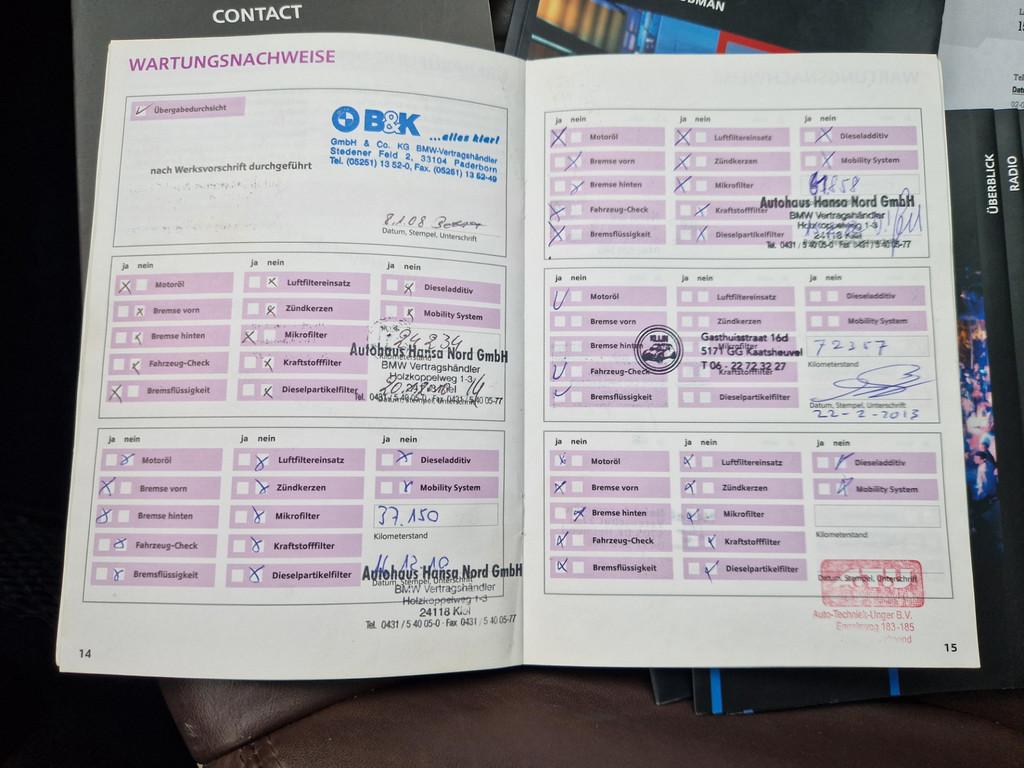 CONTACT
WARTUNGSNACHWEISE
Übergabedurchsicht
B&K
...alles klar!
GmbH & Co. KG BMW-Vertragshändler
Stedener Feld 2, 33104 Paderborn
Tel. (05251) 13 52-0, Fax. (05251) 13 52-49
nach Werksvorschrift durchgeführt
8.1.08
Datum, Stempel, Unterschrift
ja nein
ja nein
ja nein
Motoröl
Luftfiltereinsatz
Dieseladditiv
Bremse vorn
Zündkerzen
Mobility System
Bremse hinten
Mikrofilter
Autohaus Hansa Nord GmbH
Fahrzeug-Check
Kraftstofffilter
BMW Vertragshändler
Holzkoppelweg 1-3
Bremsflüssigkeit
Dieselpartikelfilter
Tel. 0431 / 5 40 05-0 · Fax 0431 / 5 40 05-77
ja nein
ja nein
ja nein
Motoröl
Luftfiltereinsatz
Dieseladditiv
Bremse vorn
Zündkerzen
Mobility System
Bremse hinten
Mikrofilter
37.150
Kilometerstand
Fahrzeug-Check
Kraftstofffilter
16.12.10
Bremsflüssigkeit
Dieselpartikelfilter
Autohaus Hansa Nord GmbH
Datum, Stempel, Unterschrift
BMW Vertragshändler
Holzkoppelweg 1-3
24118 Kiel
Tel. 0431 / 5 40 05-0 · Fax 0431 / 5 40 05-77
14
ja nein
ja nein
ja nein
Motoröl
Luftfiltereinsatz
Dieseladditiv
Bremse vorn
Zündkerzen
Mobility System
Bremse hinten
Mikrofilter
61858
Autohaus Hansa Nord GmbH
Fahrzeug-Check
Kraftstofffilter
BMW Vertragshändler
Holzkoppelweg 1-3
Bremsflüssigkeit
Dieselpartikelfilter
24118 Kiel
Tel. 0431 / 5 40 05-0 · Fax 0431 / 5 40 05-77
ja nein
ja nein
ja nein
Motoröl
Luftfiltereinsatz
Dieseladditiv
Bremse vorn
Zündkerzen
Mobility System
Bremse hinten
Mikrofilter
Gasthuisstraat 16d
5171 GG Kaatsheuvel
T 06 - 22 72 32 27
72357
Kilometerstand
Fahrzeug-Check
Kraftstofffilter
Bremsflüssigkeit
Dieselpartikelfilter
Datum, Stempel, Unterschrift
22-2-2013
ja nein
ja nein
ja nein
Motoröl
Luftfiltereinsatz
Dieseladditiv
Bremse vorn
Zündkerzen
Mobility System
Bremse hinten
Mikrofilter
Kilometerstand
Fahrzeug-Check
Kraftstofffilter
Bremsflüssigkeit
Dieselpartikelfilter
Datum, Stempel, Unterschrift
Auto-Techniek-Unger B.V.
183-185
15
ÜBERBLICK
RADIO